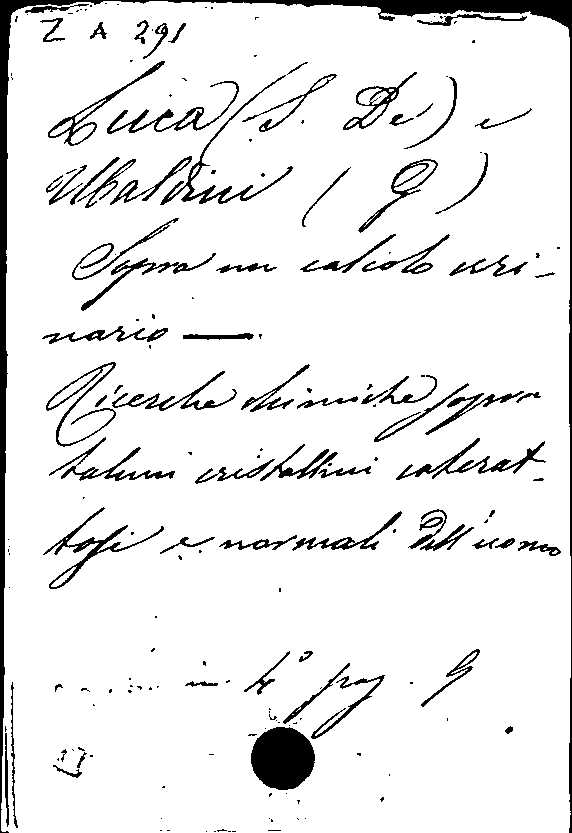 Z A 291
Luca (S. De) e
Ubaldini (G)
Sopra un calcolo uri-
nario —
Ricerche chimiche sopra
taluni cristallini caterat-
tosi e normali dell'uomo
in 4° pag. 9